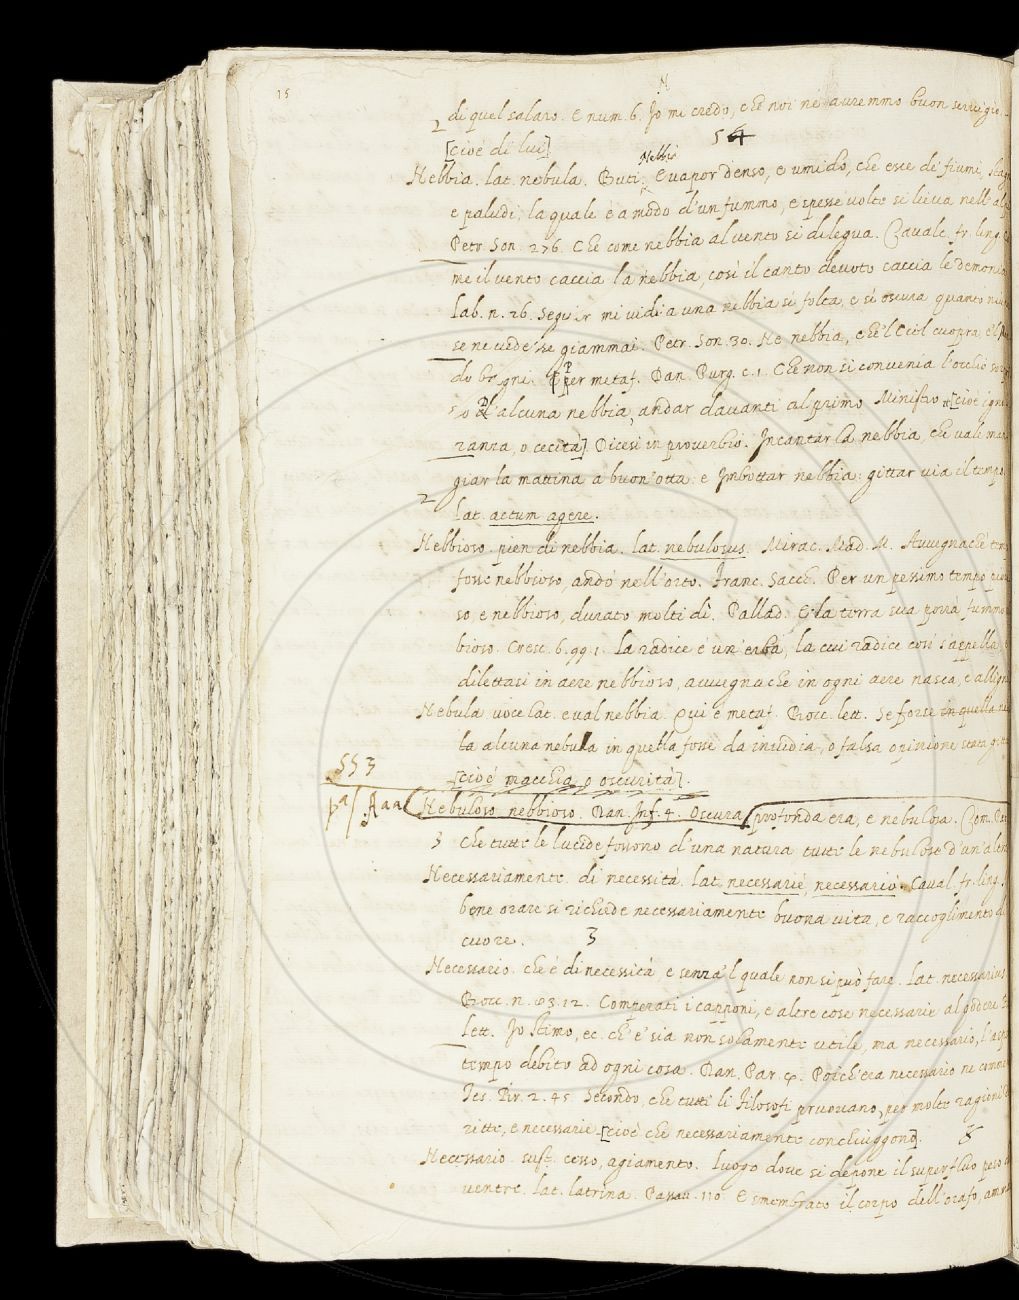 15
N
di quel salaro. E num. 6. Io mi credo, che noi n'auremmo buon seruigio.
2 54
[cioè di lui]
Nebbio
Nebbia. lat. nebula. Buti. È uapor denso, e umido, che esce de' fiumi,
e paludi, la quale è a modo d'un fummo, e spesse uolte si lieua nell'
Petr. Son. 276. Che come nebbia al uento si dilegua. Caualc. fr. ling.
me il uento caccia la nebbia, così il canto deuoto caccia le demonia
Lab. n. 26. Seguir mi uidi a una nebbia sì folta, e sì oscura quanto
se ne uedesse giammai. Petr. Son. 30. Nè nebbia, che 'l Ciel cuopra, e 'l
do bagni. Per metaf. Dan. Purg. c. 1. Che non si conuenia l'occhio
so d'alcuna nebbia, andar dauanti al primo Ministro [cioè igno
ranza, o cecità] Dicesi in prouerbio. Incantar la nebbia, che uale man
giar la mattina a buon'otta: e Imbottar nebbia: gittar uia il tempo
2
lat. actum agere.
Nebbioso. pien di nebbia. lat. nebulosus. Mirac. Mad. M. Auuegnachè
fosse nebbioso, andò nell'orto. Franc. Sacch. Per un pessimo tempo
so, e nebbioso, durato molti dì. Pallad. E la terra sua porrà fummo
bioso. Cresc. 6. 99. 1. La radice è un'erba, la cui radice così s'appella,
dilettasi in aere nebbioso, auuegnache in ogni aere nasca, e allign
Nebula uoce lat. e ual nebbia. Qui è metaf. Bocc. lett. Se forse in quella ne
la alcuna nebula in quella fosse da inuidia, o falsa opinione stata
553
[cioè macchia, o oscurità].
pa/ Aaa Nebuloso. nebbioso. Dan. Inf. 4. Oscura, profonda era, e nebulosa. Com.
3 Che tutte le lucide fossono d'una natura tutte le nebulose d'un'altr
Necessariamente. di necessità. lat. necessariè, necessariò. Caual. fr. ling.
bene orare si richiede necessariamente buona uita, e raccoglimento di
cuore. 3
Necessario. che è di necessità e senza 'l quale non si può fare. lat. necessarius
Bocc. n. 93. 12. Comperati i capponi, e altre cose necessarie al godere
lett. Io stimo, ec. ch'e' sia non solamente utile, ma necessario, l'
tempo debito ad ogni cosa. Dan. Par. 4. Poich'era necessario ne
Tes. Br. 2. 45. Secondo, che tutti li Filosofi pruouano, per molte ragioni
ritte, e necessarie [cioè che necessariamente conchiuggono].
Necessario. sust. cesso, agiamento. Luogo doue si depone il superfluo peso
uentre. lat. latrina. Passau. 110. E smembrato il corpo dell'orafo,